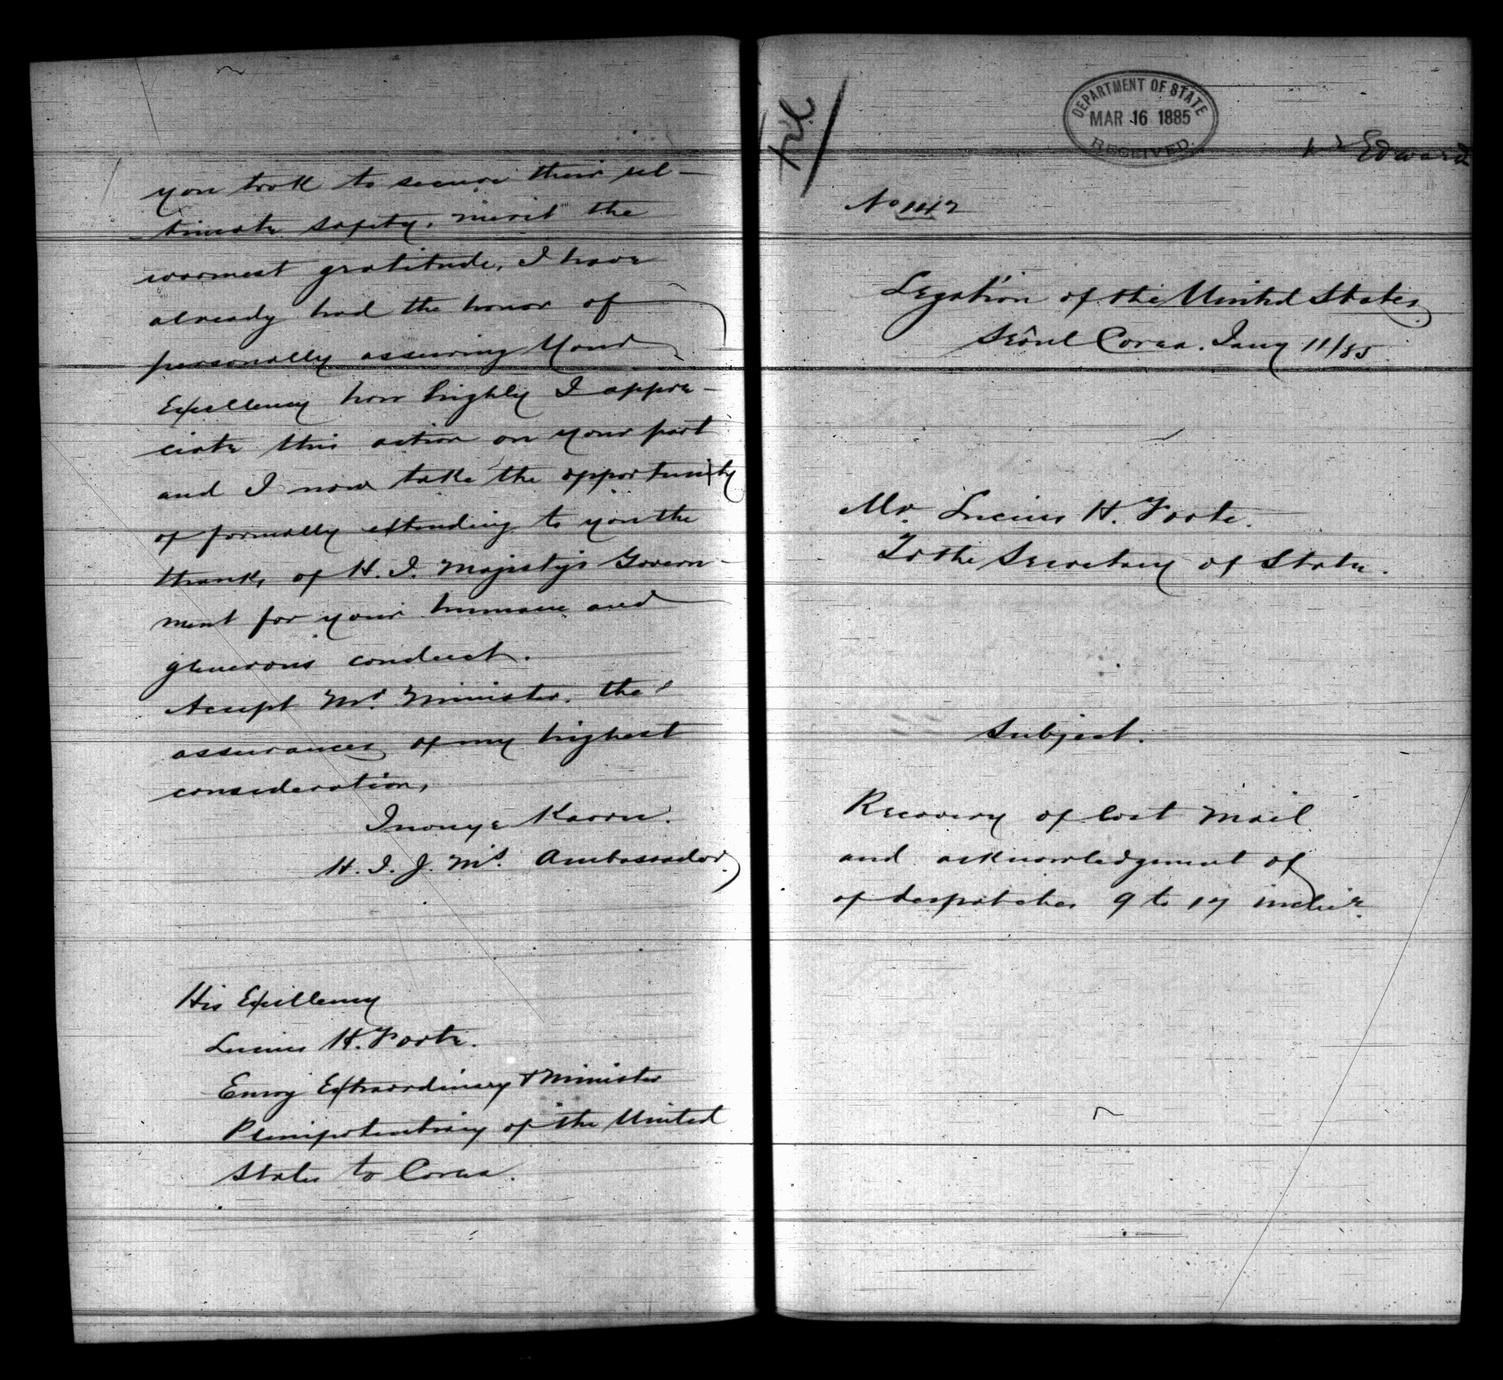 you took to secure their ul-
timate safety, merit the
warmest gratitude, I have
already had the honor of
personally assuring Your
Excellency how highly I appre-
ciate this action on your part
and I now take the opportunity
of formally extending to you the
thanks of H. I. Majesty's Govern-
ment for your humane and
generous conduct.
Accept Mr. Minister, the
assurances of my highest
consideration,
Inouye Kaoru.
H. I. J. M's. Ambassador.
His Excellency
Lucius H. Foote.
Envoy Extraordinary & Minister
Plenipotentiary of the United
States to Corea.
DEPARTMENT OF STATE
MAR 16 1885
RECEIVED
Edward
No 142
Legation of the United States
Seôul Corea. Jany 11/85
Mr. Lucius H. Foote.
To the Secretary of State.
Subject.
Recovery of lost mail
and acknowledgement of
of despatches 9 to 17 inclve.